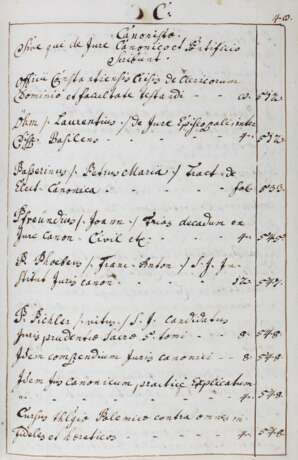 C. 40.
Canonistæ
sive qui de Jure Canonico et Pontificio
scribunt.
Officii Constantiensis Crisis de Clericorum
Dominio et facultate testandi - - 512.
Ohm /. Laurentius ./ de Jure Episcopali inter
Basileno - - - 4. 512.
Passerinus /. Petrus Maria ./ Tract. de
Elect. Canonica - - - fol. 533.
Freundius /. Joann ./ decadum ex
Jure Canon. Civil etc. - - - 4. 545.
P. Phoebeus /. Franc. Anton ./ S. J. In-
stitut Juris canon - - - 12. 547.
P. Pichler /. vitus ./ S. J. Candidatus
Jurisprudentiæ Sacræ 5. tomi - - 8. 548.
Idem compendium Juris canonici - - 8. 548.
Idem Jus canonicum practicè Explicatum
- - - 4. 548.
Cursus Polemicæ contra omnes in-
fideles et hæreticos - - - 4. 548.